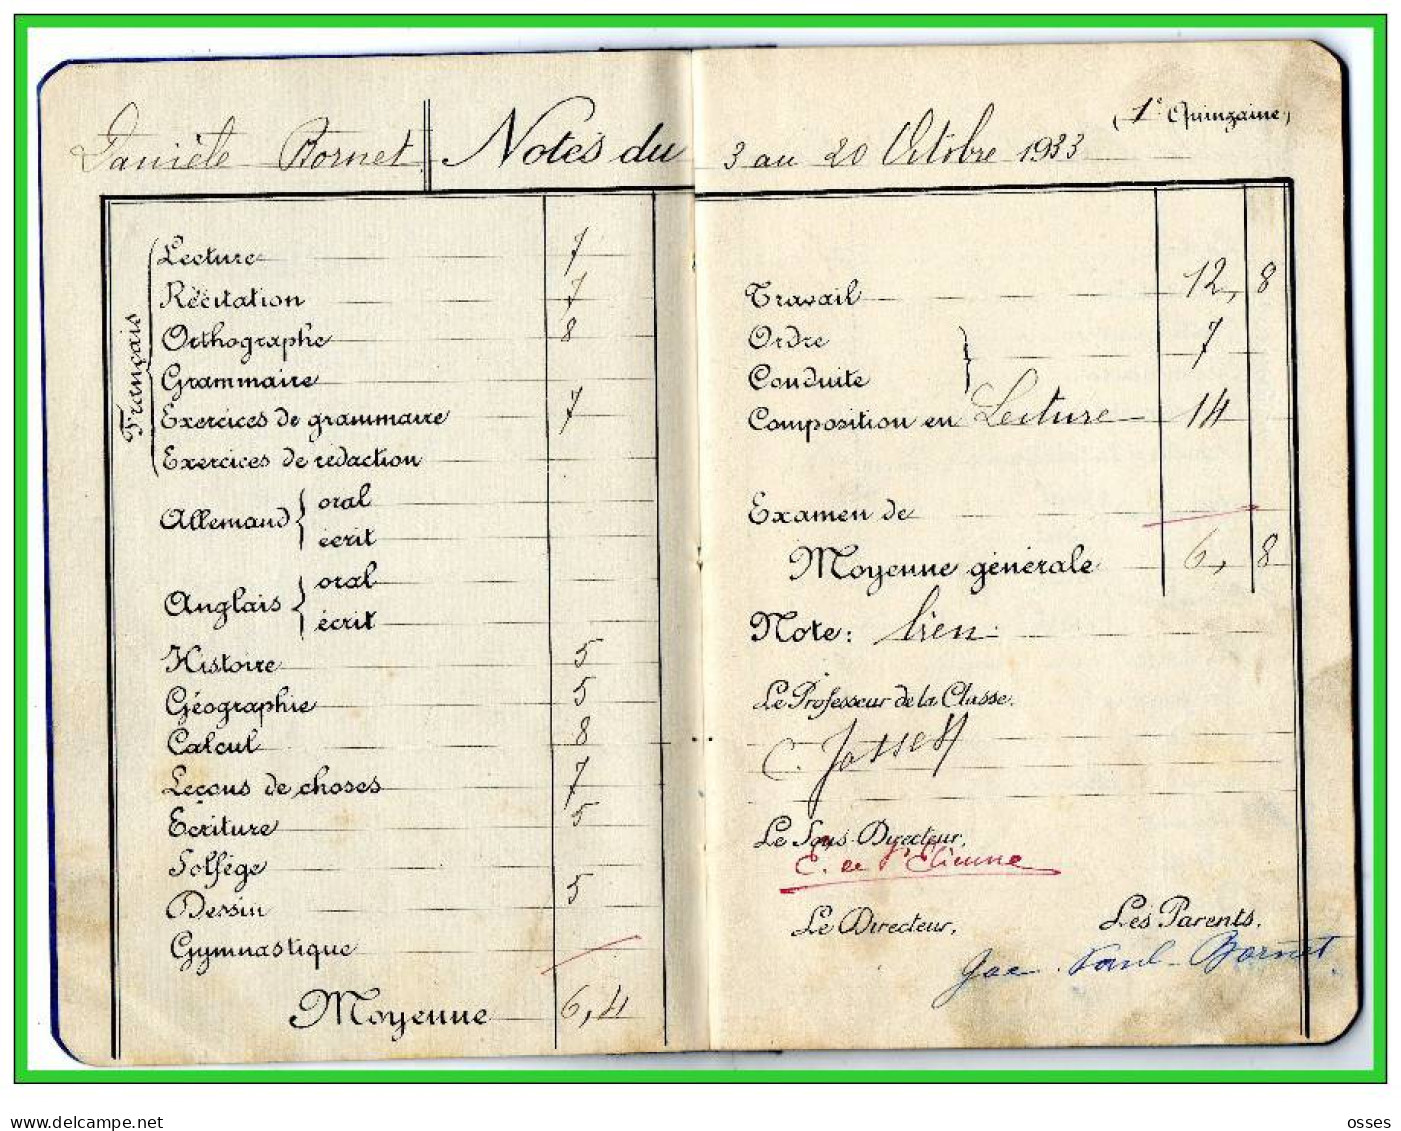 Danièle Bornet Notes du 3 au 20 Octobre 1933 (1e Quinzaine)
Français
Lecture 7
Récitation 7
Orthographe 8
Grammaire
Exercices de grammaire 7
Exercices de rédaction
Allemand { oral
écrit
Anglais { oral
écrit
Histoire 5
Géographie 5
Calcul 8
Leçons de choses 7
Ecriture 5
Solfège
Dessin 5
Gymnastique
Moyenne 6,4
Travail 12, 8
Ordre } 7
Conduite
Composition en Lecture 14
Examen de
Moyenne générale 6, 8
Note: bien.
Le Professeur de la Classe.
C. Josset
Le Sous-Directeur.
Le Directeur.
Les Parents.
Bornet.
www.delcampe.net
osses